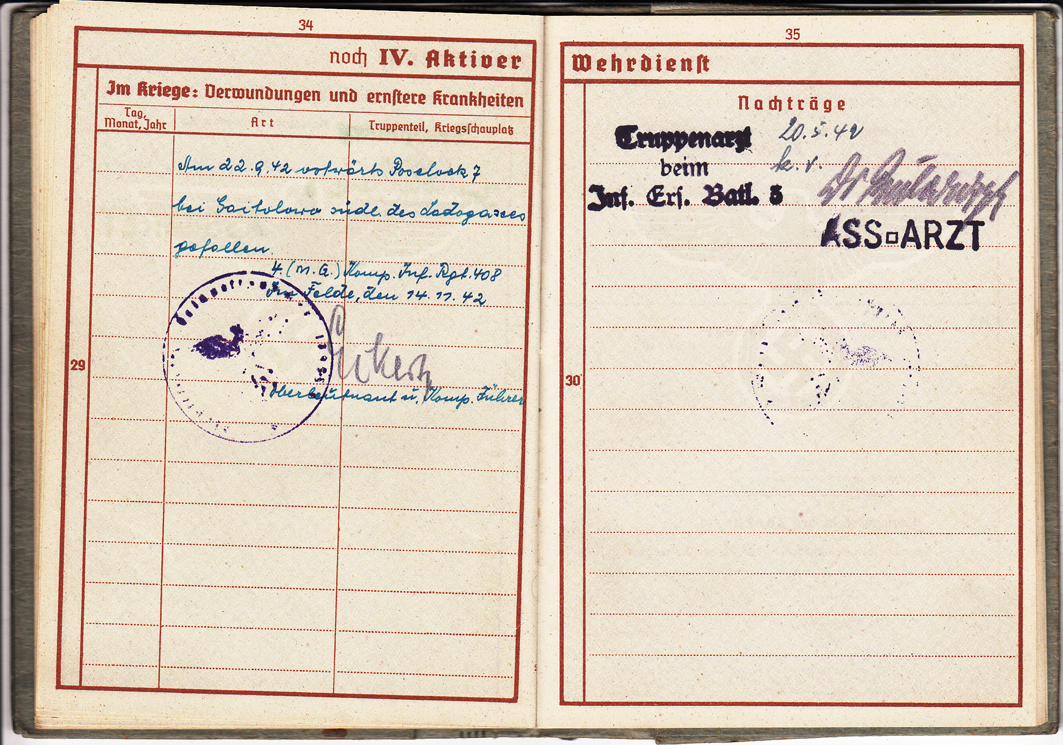 34
noch IV. Aktiver
Im Kriege: Verwundungen und ernstere Krankheiten
Tag, Monat, Jahr
Art
Truppenteil, Kriegsschauplatz
Am 22.9.42 ostwärts Posselock 7
bei Gaitolowo südl. des Ladogasees
gefallen.
4. (M.G.) Komp. Inf. Rgt. 408
Im Felde, den 14.11.42
Oberleutnant u. Komp. Führer
29
35
Wehrdienst
Nachträge
Truppenarzt
beim
Inf. Ers. Batl. 5
20.5.42
k.v.
Dr
ASS ARZT
30